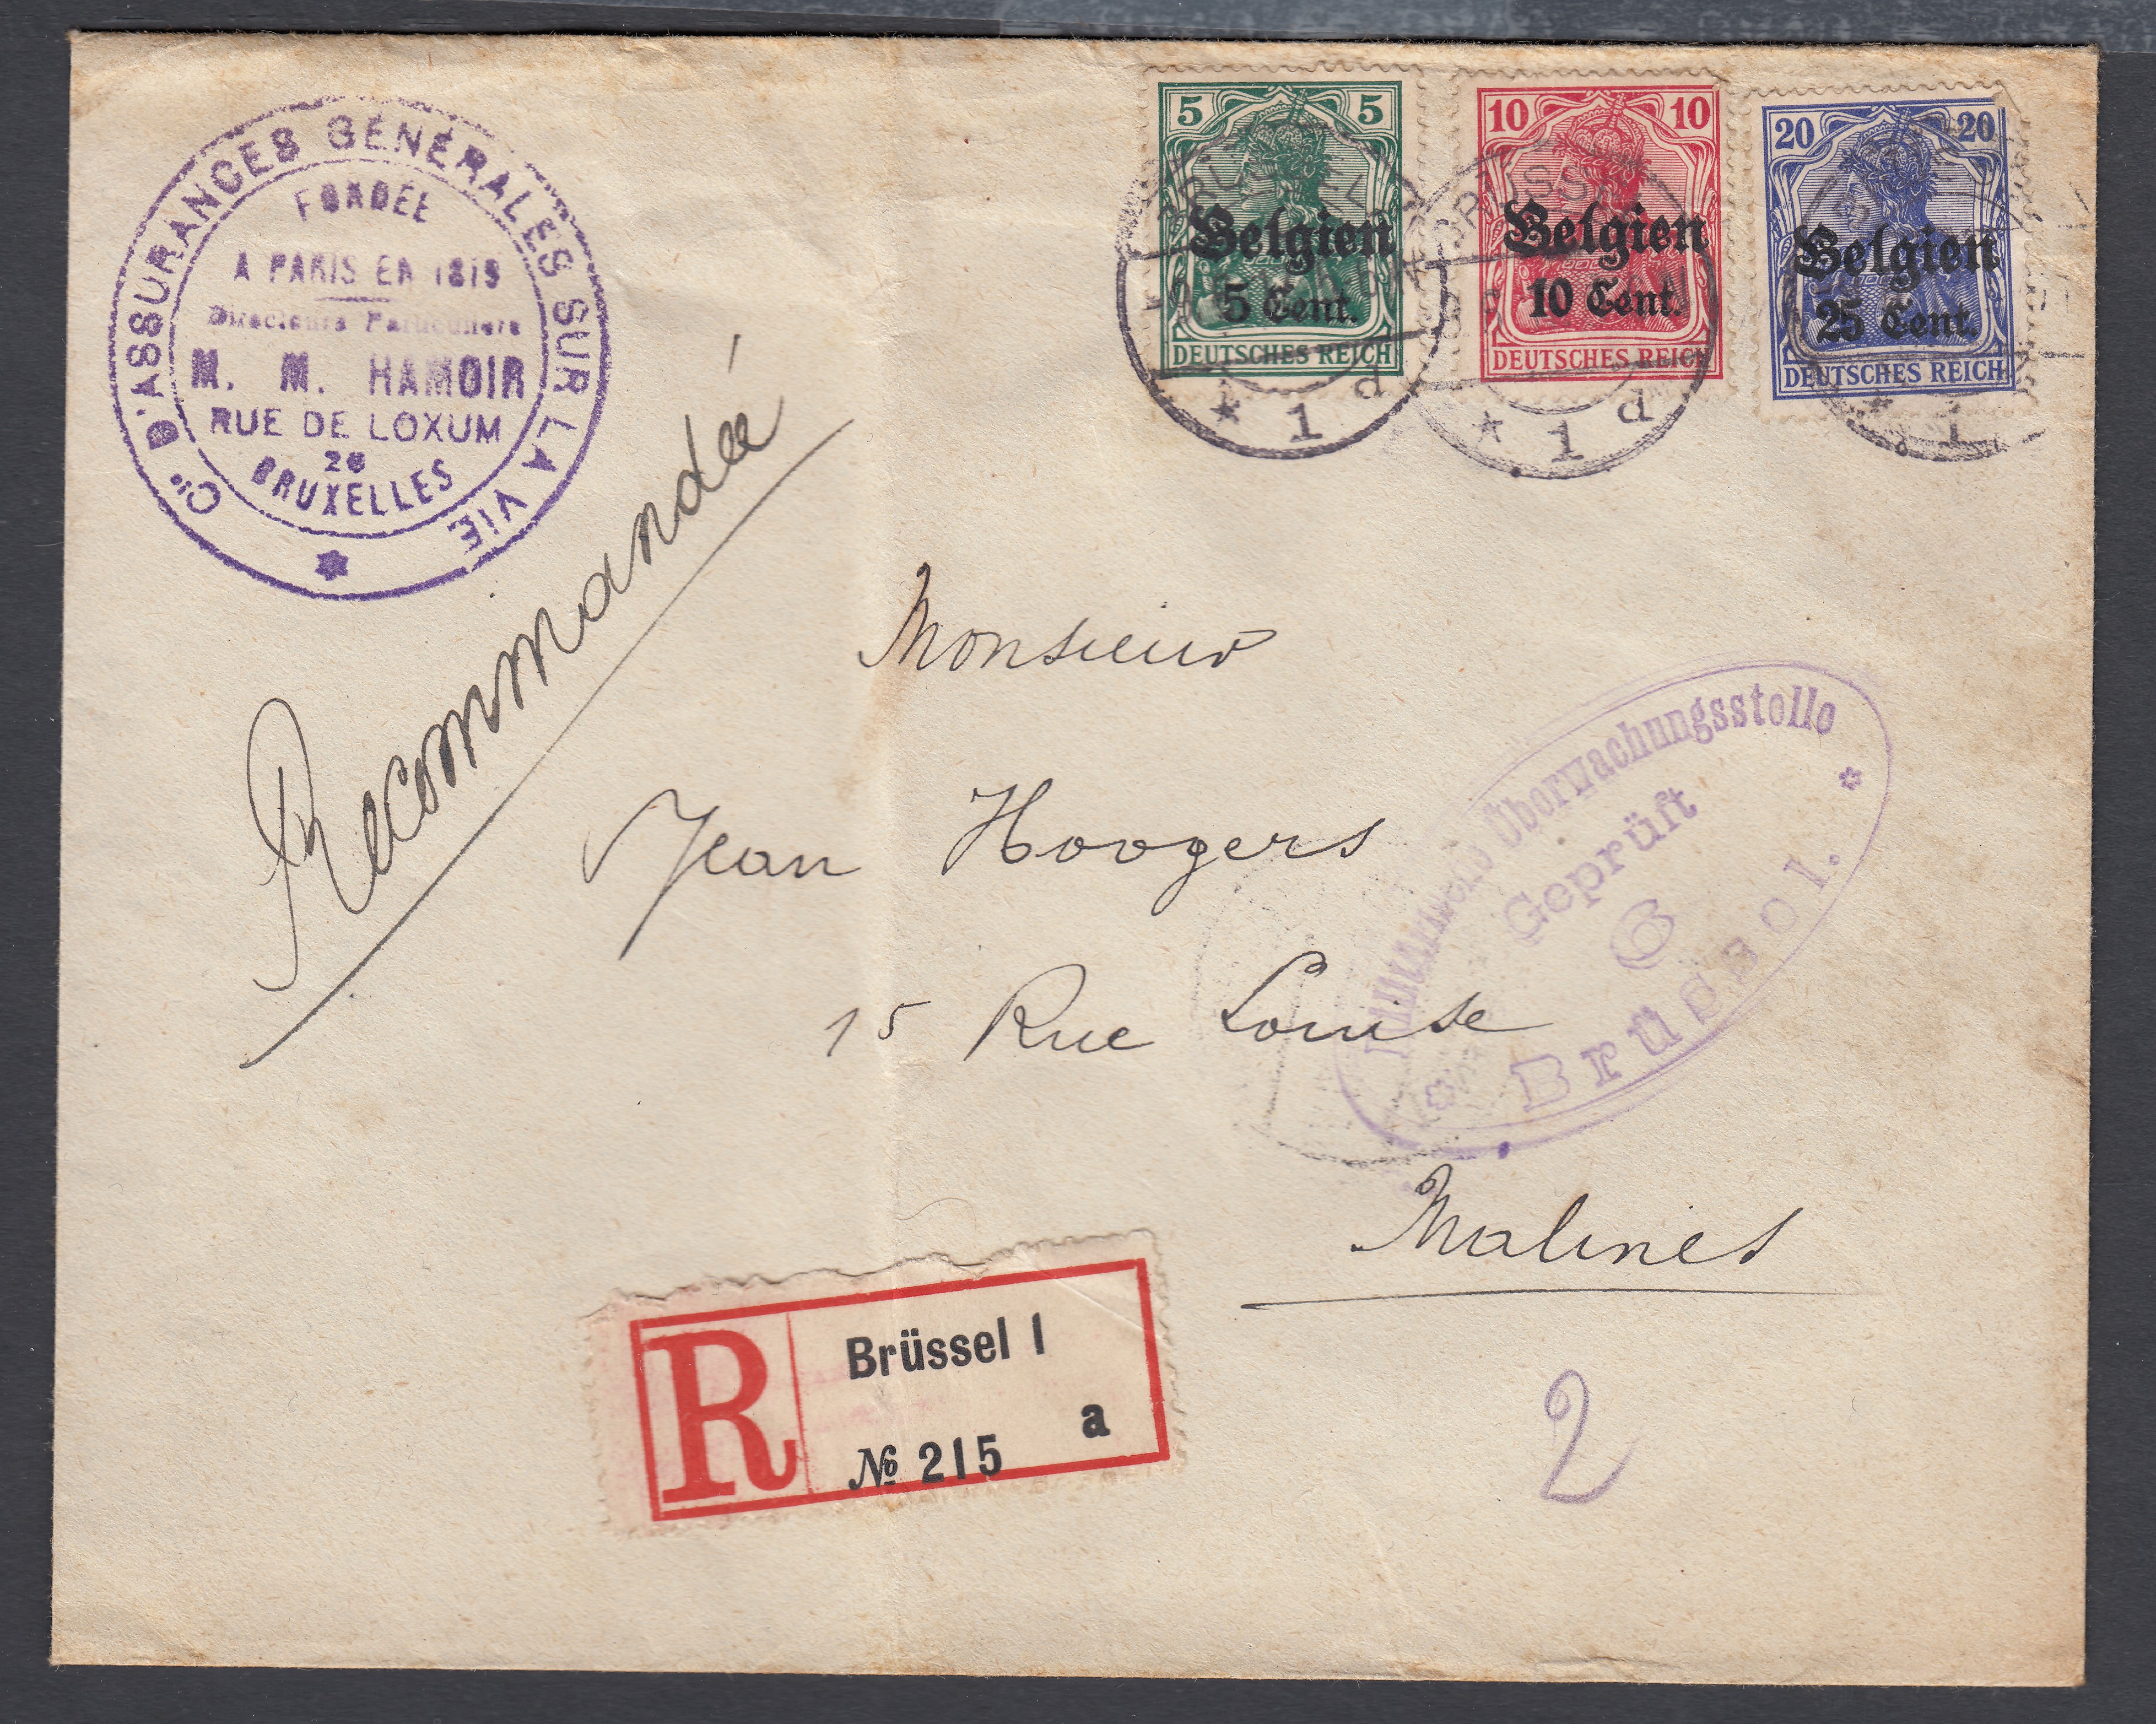 Cie D'ASSURANCES GÉNÉRALES SUR LA VIE
FONDÉE
A PARIS EN 1819
Directeurs Particuliers
M. M. HAMOIR
RUE DE LOXUM
20
BRUXELLES
5 5
Belgien
5 Cent.
DEUTSCHES REICH
10 10
Belgien
10 Cent.
DEUTSCHES REICH
20 20
Belgien
25 Cent.
DEUTSCHES REICH
BRÜSSEL
* 1 d
BRÜSSEL
* 1 d
* 1
Recommandée
Monsieur
Jean Hoogers
15 Rue Louise
Malines
Militärische Überwachungsstelle
Geprüft
6
Brüssel.
R
Brüssel 1
a
№ 215
2